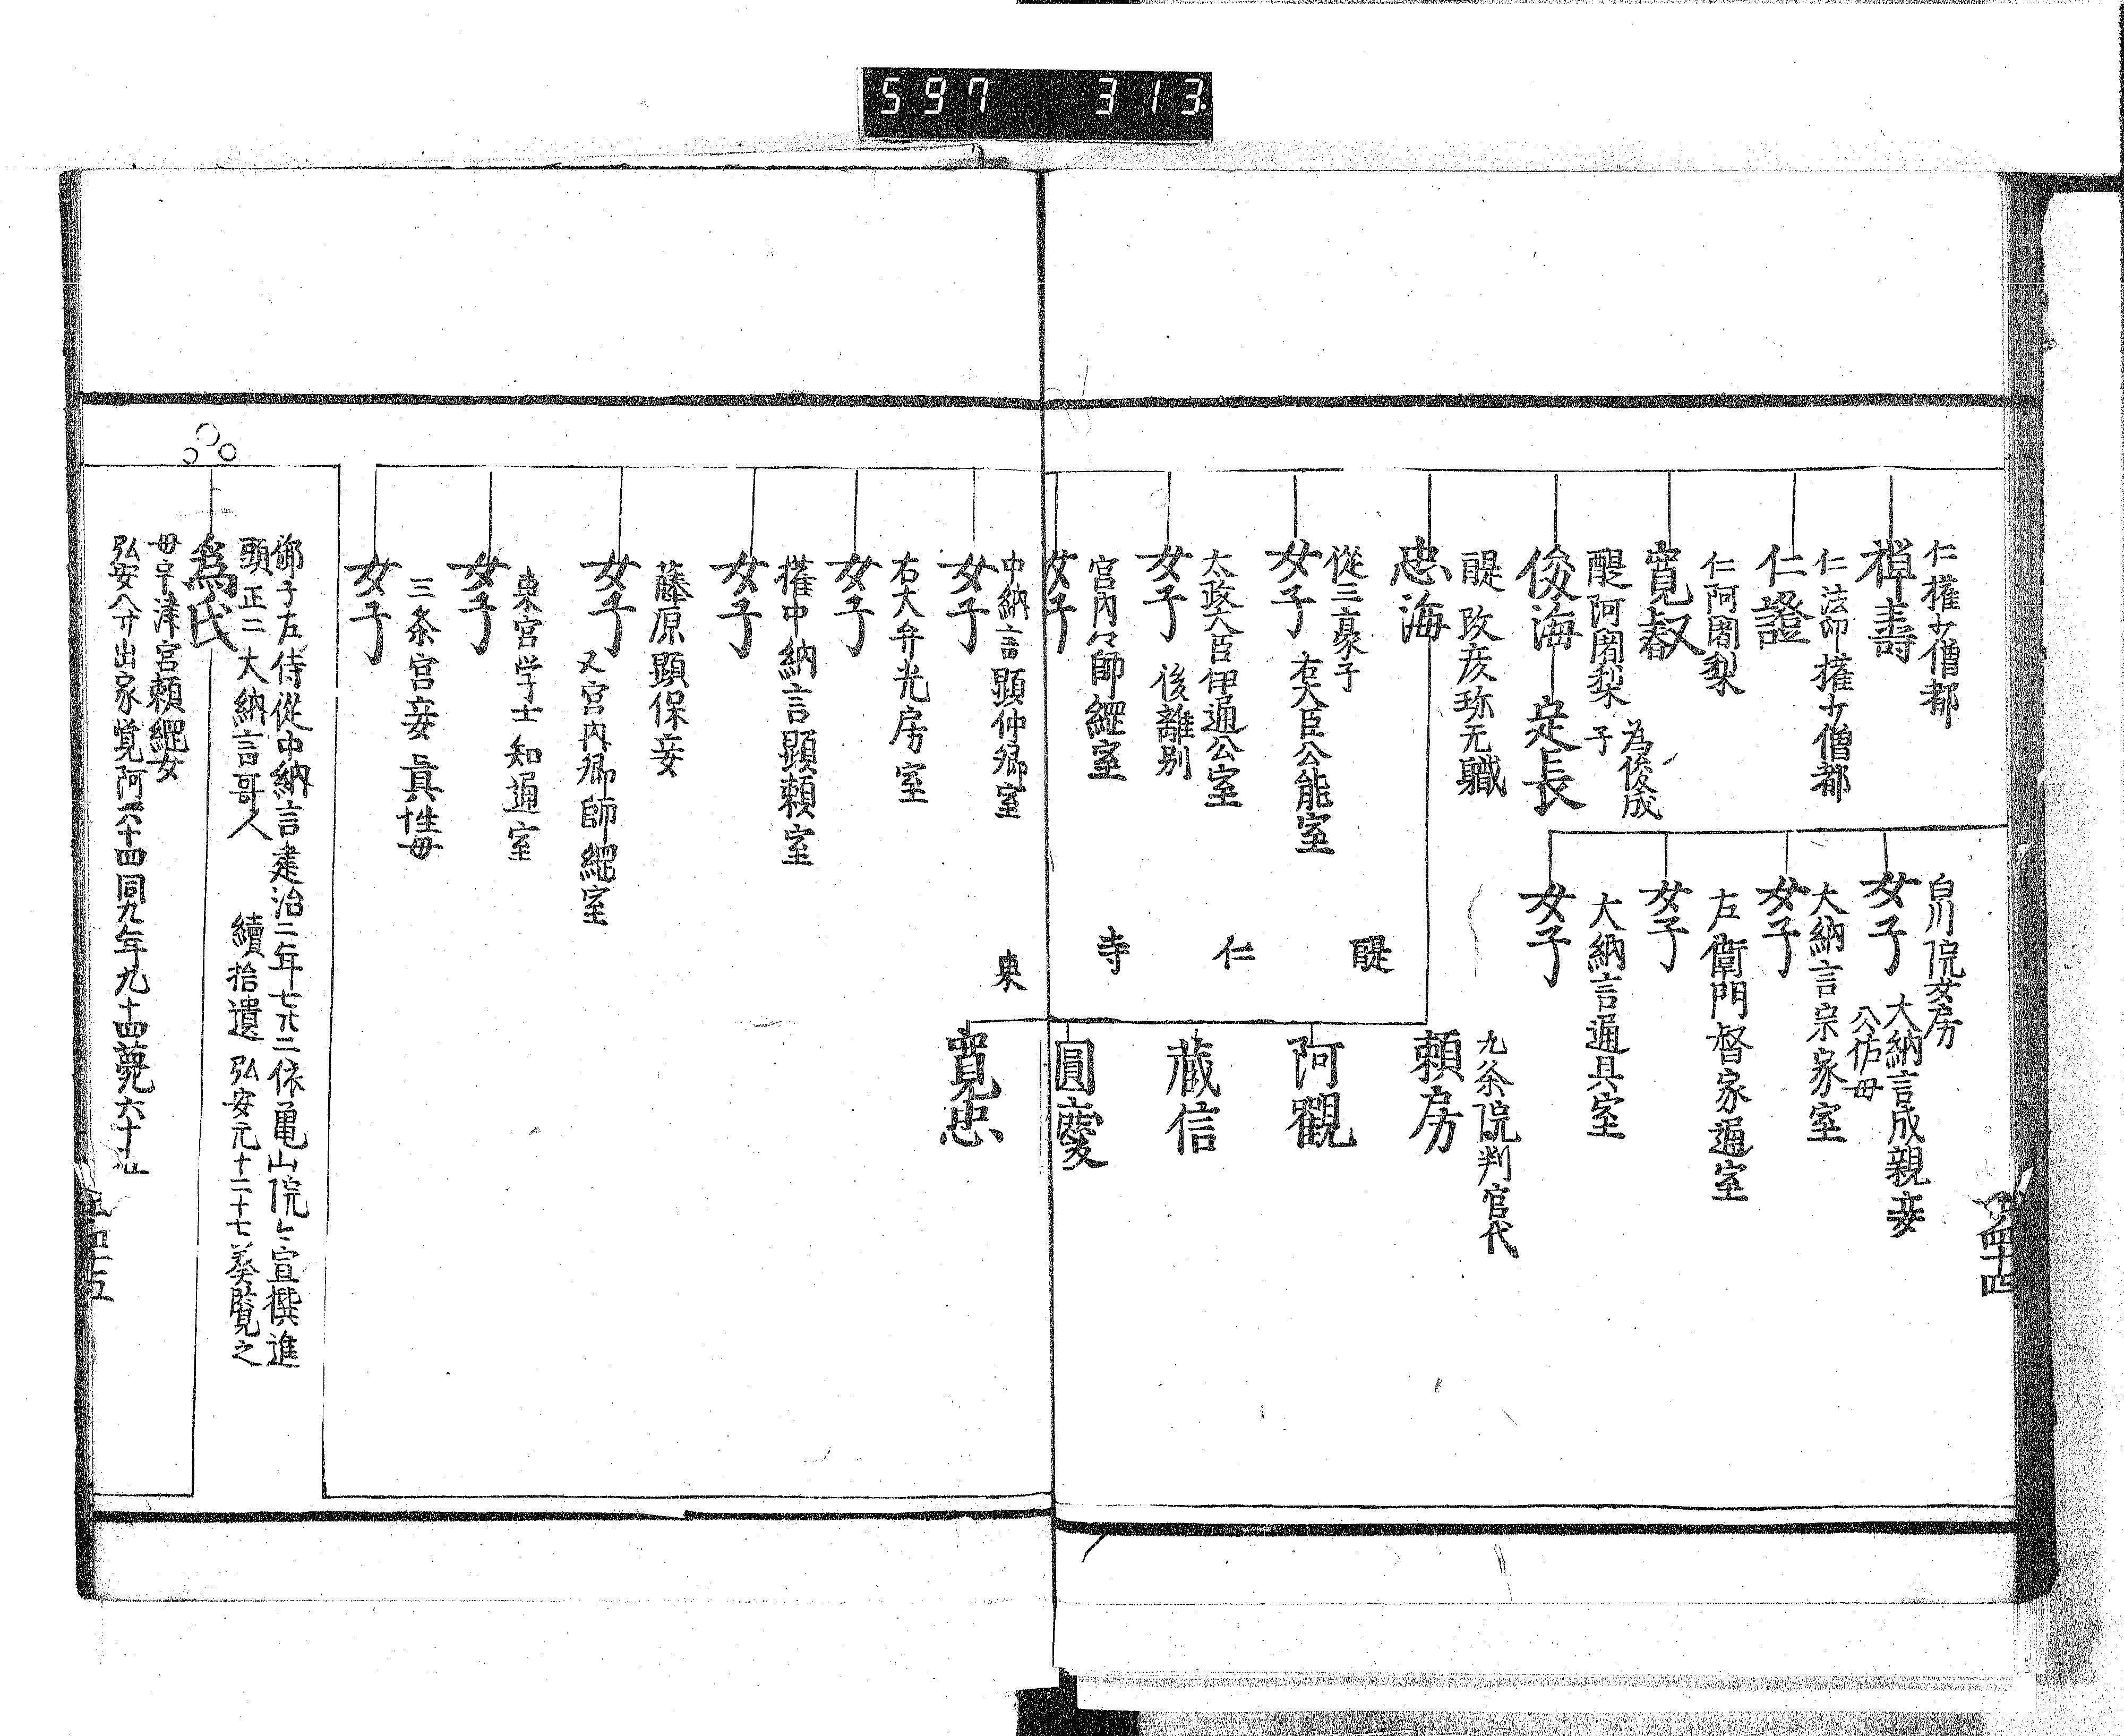 597 313
仁権少僧都
禅壽
仁法印権少僧都
仁證
仁阿闍梨
寛叡
醍阿闍梨
俊海
為俊成
子
定長
醍改疾珎无職
忠海
従三豪子
女子
右大臣公能室
太政大臣伊通公室
女子
後離別
宮内々師綱室
女子
白川院女房
女子
大納言成親妾
公佑母
大納言宗家室
女子
左衛門督家通室
女子
大納言通具室
女子
九条院判官代
頼房
醍
阿觀
仁
蔵信
寺
圓慶
東
寛忠
四十四
中納言顕仲卿室
女子
右大弁光房室
女子
権中納言顕頼室
女子
藤原顕保妾
女子
又宮内卿師綱室
東宮学士知通室
女子
三条宮妾真性母
女子
御子左侍従中納言建治二年七廾二依亀山院々宣撰進
頭正二大納言哥人
續拾遺弘安元十二十七奏覧之
為氏
母宇津宮頼綱女
弘安八廾出家覚阿六十四同九年九十四薨六十五
四十五